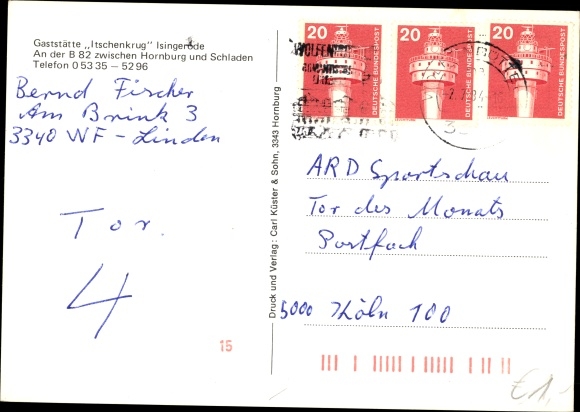 Gaststätte „Itschenkrug" Isingerode
An der B 82 zwischen Hornburg und Schladen
Telefon 0 53 35 – 52 96
Bernd Fischer
Am Brink 3
3340 WF - Linden
Tor
4
15
Druck und Verlag: Carl Küster & Sohn, 3343 Hornburg
20 DEUTSCHE BUNDESPOST
20 DEUTSCHE BUNDESPOST
20 DEUTSCHE BUNDESPOST
ARD Sportschau
Tor des Monats
Postfach
5000 Köln 100
€ 1,-